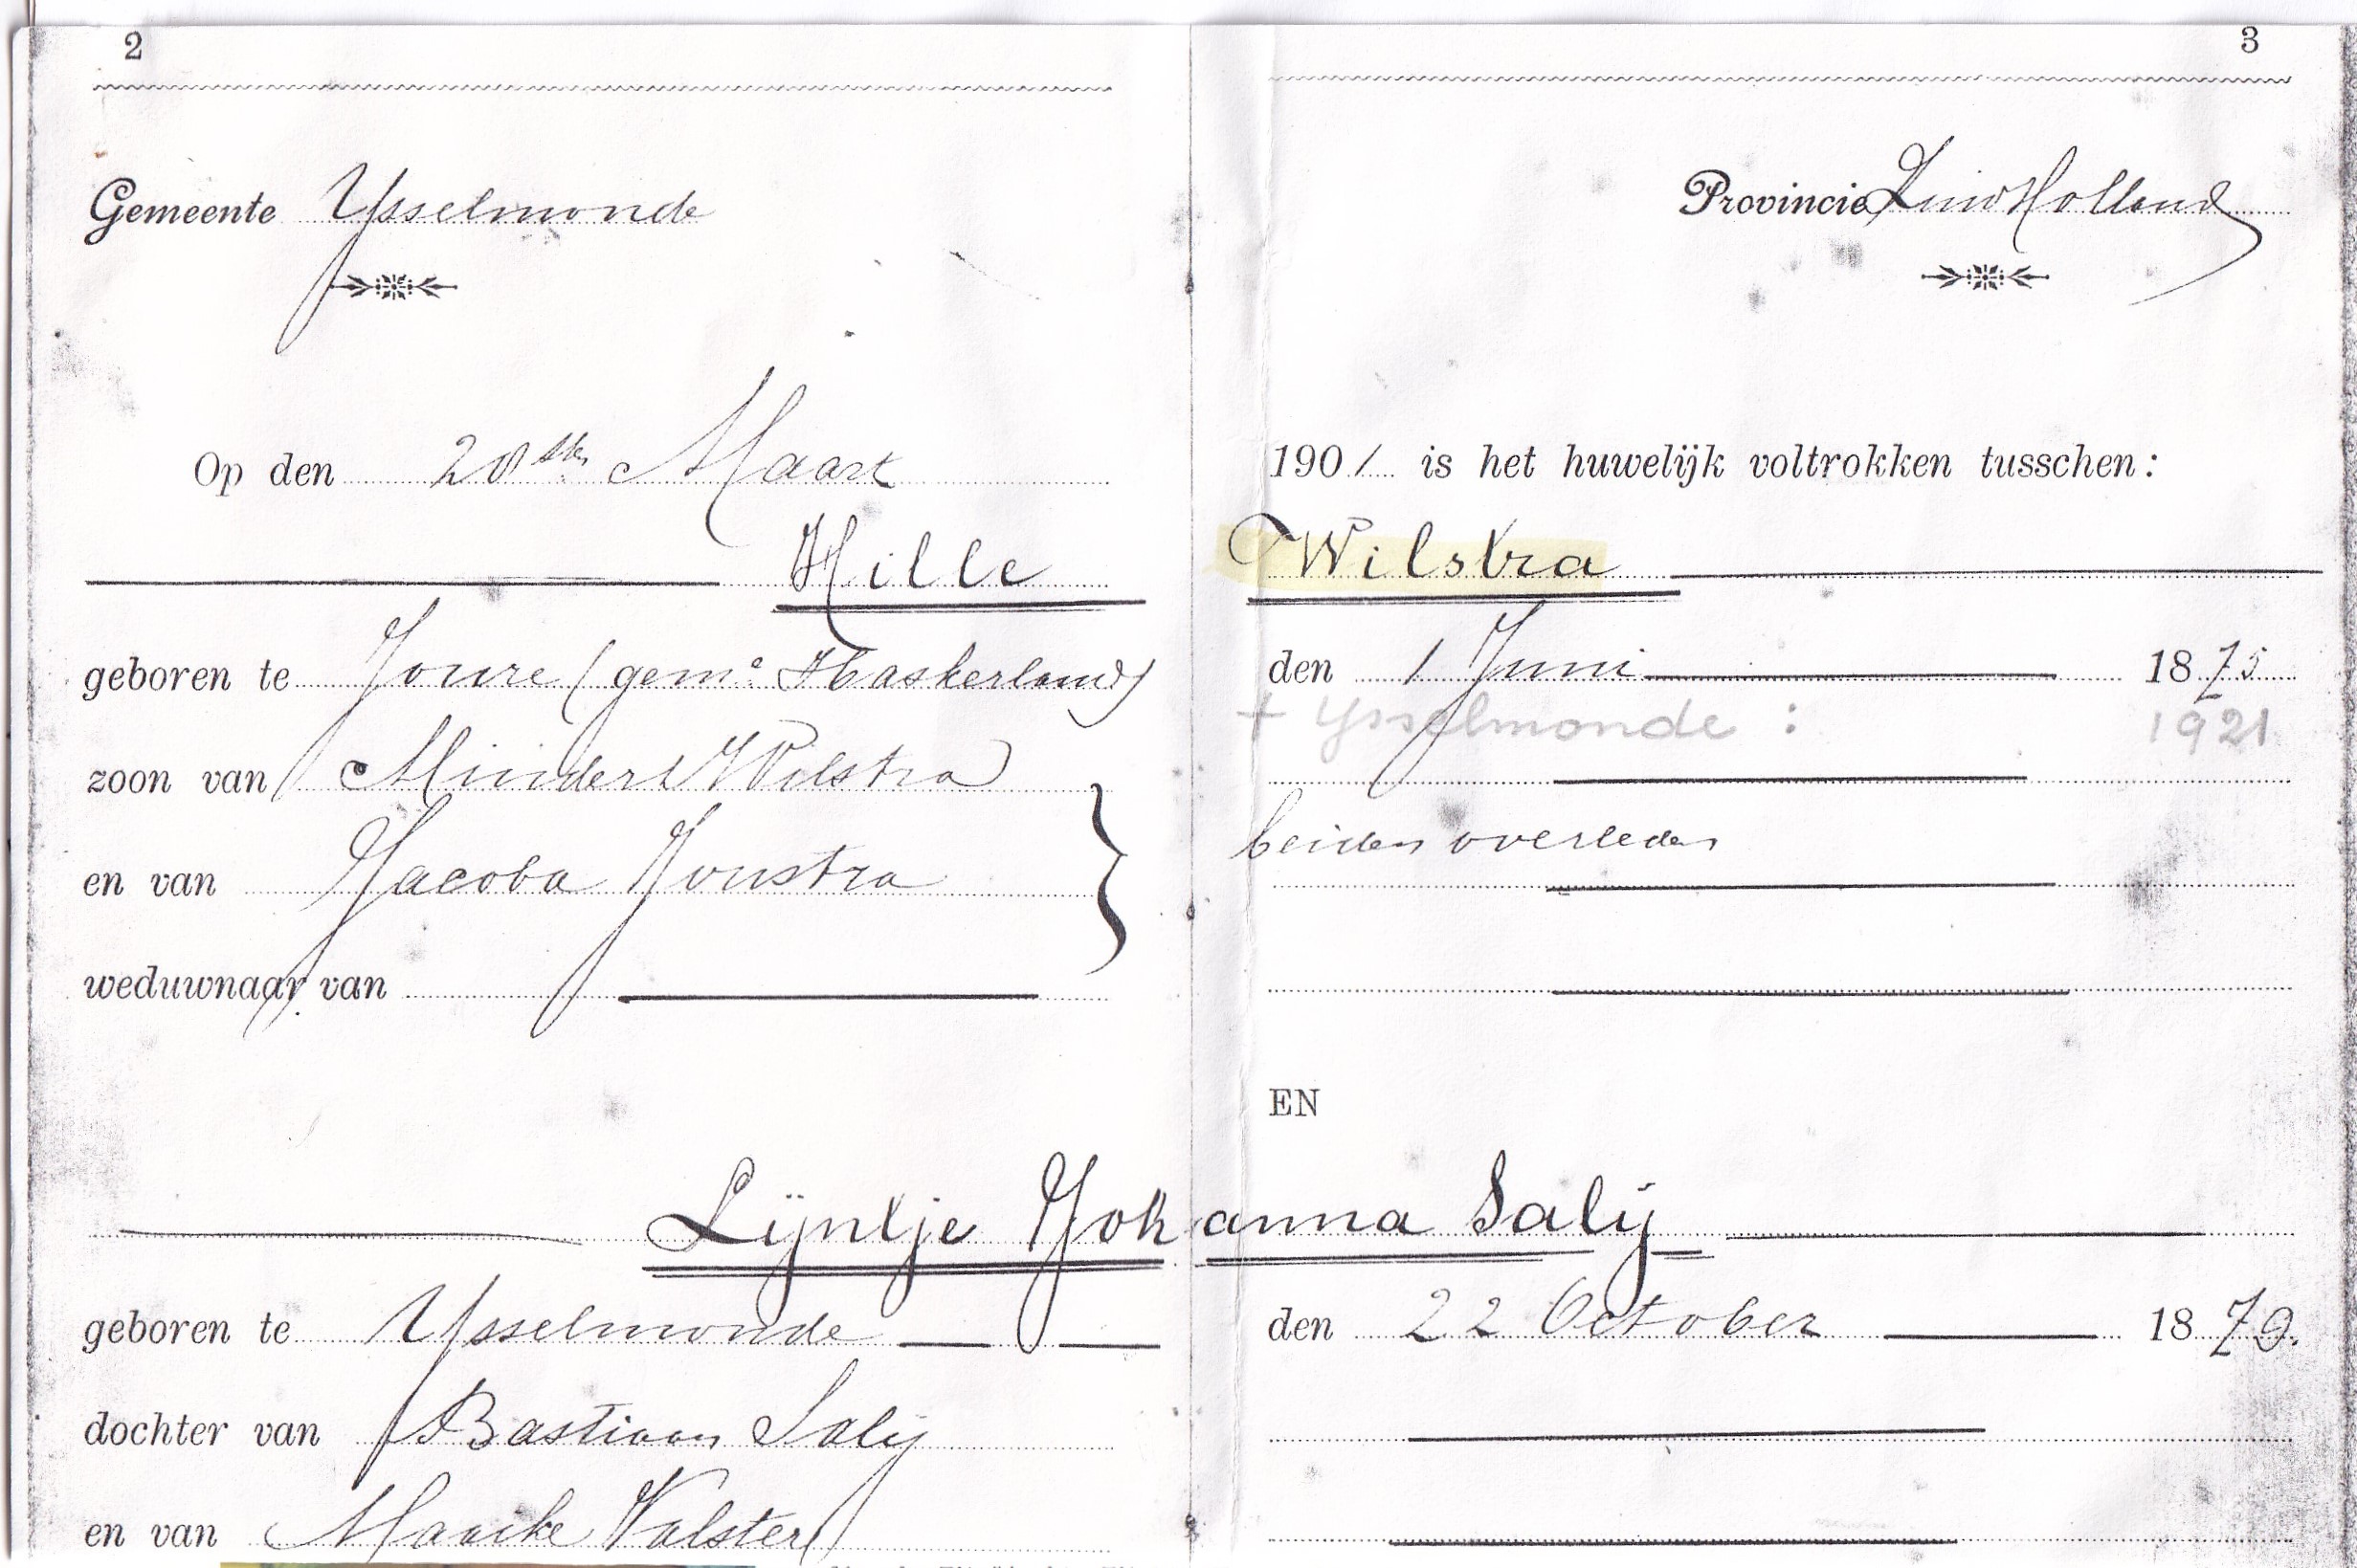 2
3
Gemeente Ysselmonde
Provincie Zuid Holland
Op den 20sten Maart 1901 is het huwelijk voltrokken tusschen:
Hille Wilstra
geboren te Joure (geme Haskerland) den 1 Juni 1875
+ Ysselmonde : 1921
zoon van Mindert Wilstra
en van Jacoba Joustra } beiden overleden
weduwnaar van
EN
Lijntje Johanna Salij
geboren te Ysselmonde den 22 October 1879.
dochter van Bastiaan Salij
en van Maaike Valster